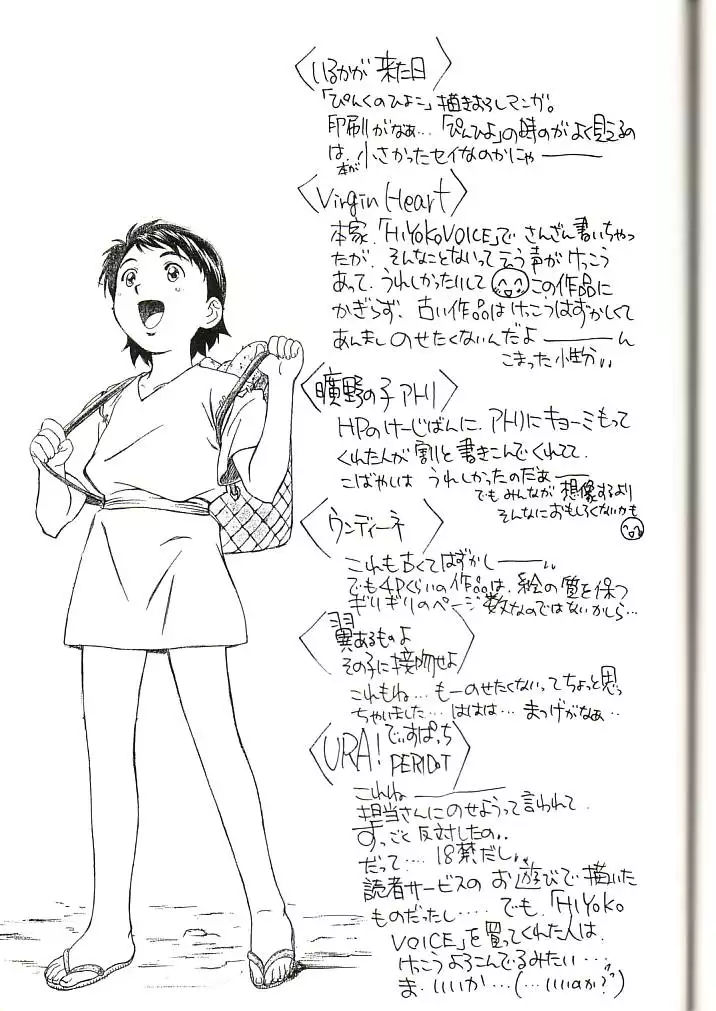 いるかが来た日
「ぴんくのひよこ」描きおろしマンガ。
印刷がなぁ…「ぴんひよ」の時のがよく見えるの
は、本が小さかったセイなのかにゃ———
Virgin Heart
本家、「HIYOKO VOICE」で さんざん書いちゃっ
たが、そんなことないって言う声がけっこう
あって、うれしかったりして この作品に
かぎらず、古い作品はけっこうはずかしくて
あんましのせたくないんだよ———ん
こまった性分、、
曠野の子アハリ
HPのけーじばんに、アハリにキョーミもって
くれた人が割と書きこんでくれてて、
こばやしは うれしかったのだぁ——
でもみんなが想像するより
そんなにおもしろくないかも
ウンディーネ
これも古くてはずかし———、、
でも4Pくらいの作品は、絵の質を保つ
ギリギリのページ数なのではないかしら…
翼あるものよ
その子に接吻せよ
これもね…もーのせたくないってちょっと思っ
ちゃいました…ははは… まつげがなぁ‥
URA! でぃすぱっち PERIDOT
これね————
担当さんにのせようって言われて、
すっごく反対したの、、
だって…、18禁だし、、
読者サービスの お遊びで描いた
ものだったし…、でも、「HIYOKO
VOICE」を買ってくれた人は、
けっこうよろこんでるみたい…
ま、いいか…(…いいのか?)